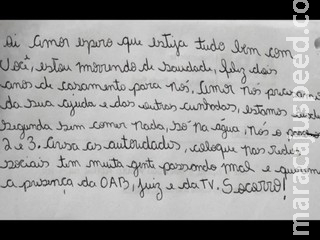 oi amor espero que esteja tudo bem com
você, estou morrendo de saudade, feliz dois
anos de casamento para nós, amor nós precisamos
da sua ajuda e das outras cunhadas, estamos desde
segunda sem comer nada, só na água, nós o
2 e 3. Avisa as autoridades, coloque nas redes
sociais tem muita gente passando mal e queremos
a presença da OAB, juiz e da TV. Socorro!
maracajuspeed.com